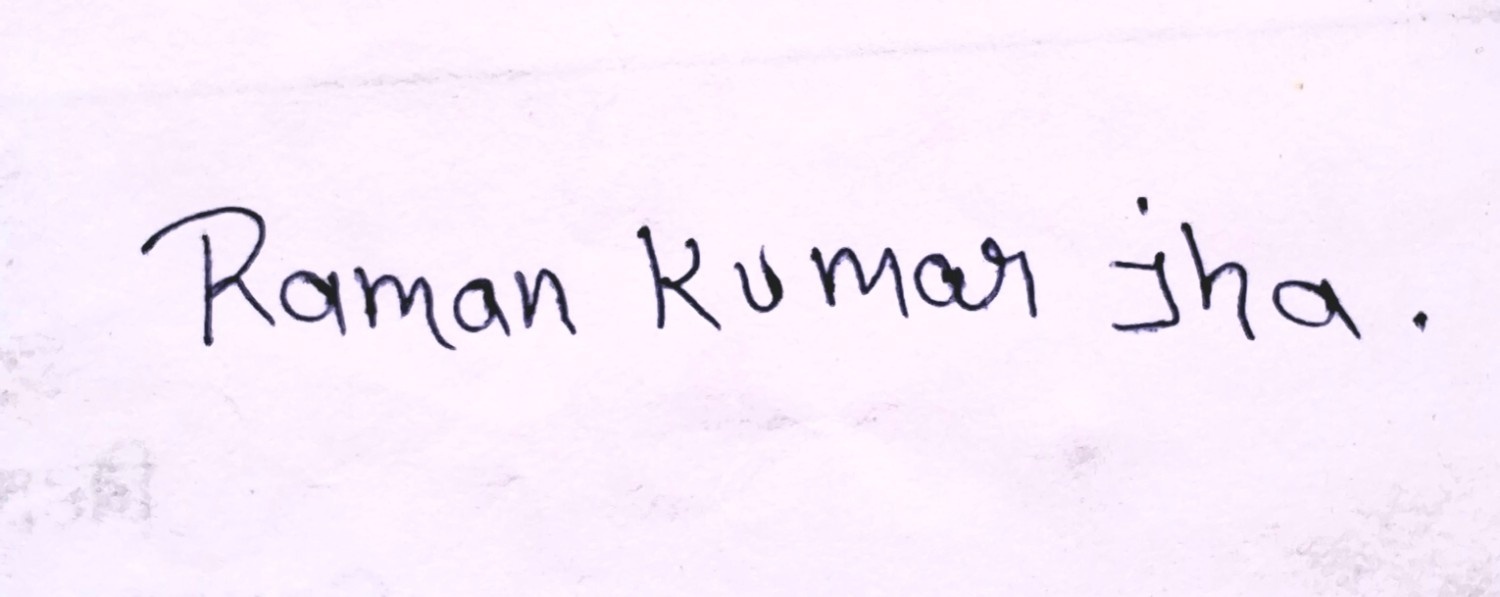 Raman Kumar jha.